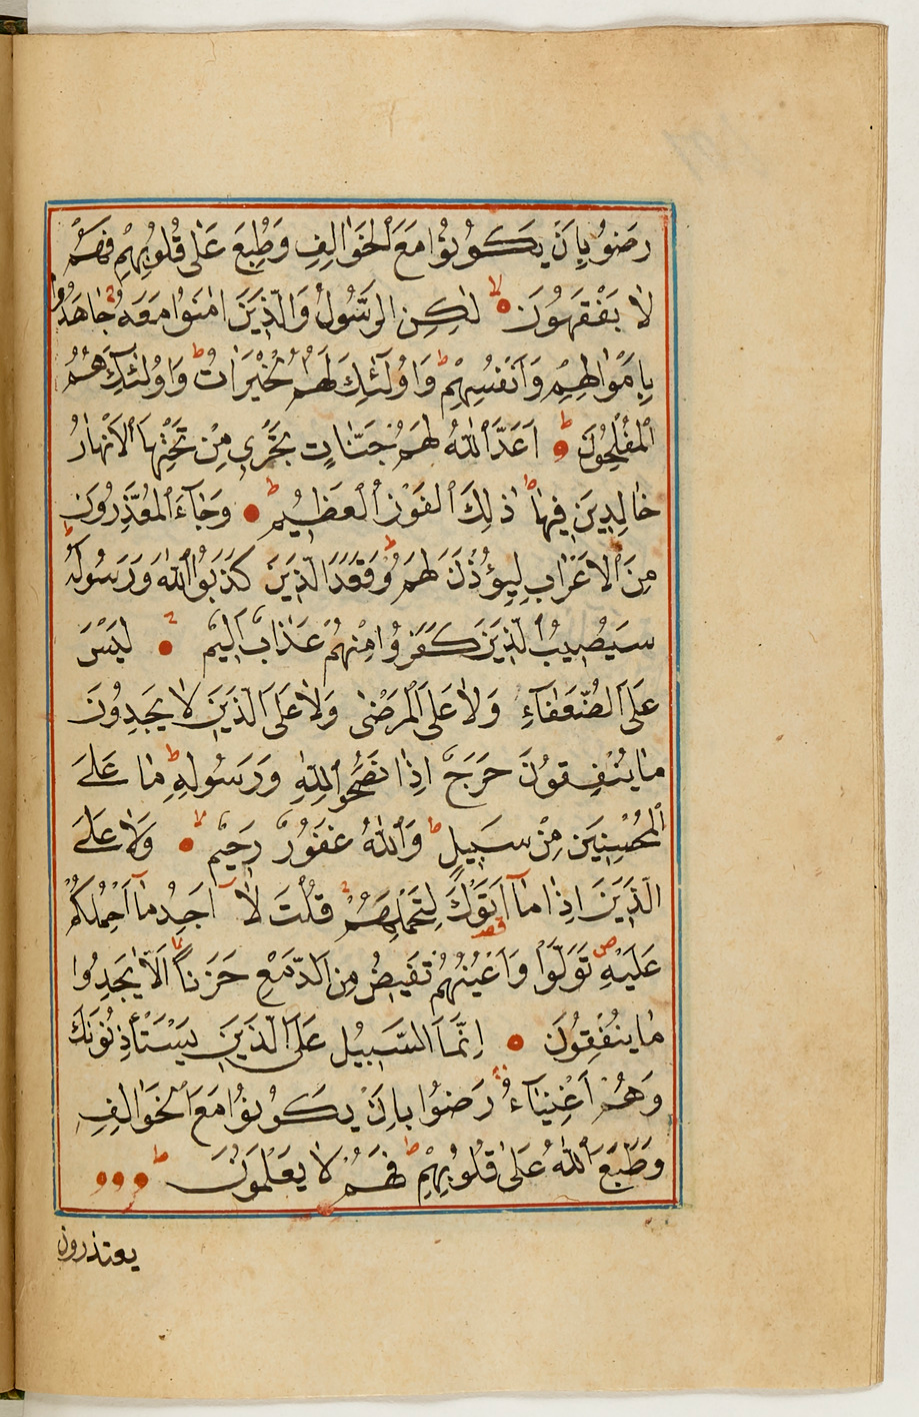 رَضُوا بِاَنْ يَكُونُوا مَعَ الْخَوَالِفِ وَطُبِعَ عَلٰى قُلُوبِهِمْ فَهُمْ
لَا يَفْقَهُونَ لٰكِنِ الرَّسُولُ وَالَّذِينَ اٰمَنُوا مَعَهُ جَاهَدُوا
بِاَمْوَالِهِمْ وَاَنْفُسِهِمْ وَاُولٰٓئِكَ لَهُمُ الْخَيْرَاتُ وَاُولٰٓئِكَ هُمُ
الْمُفْلِحُونَ اَعَدَّ اللّٰهُ لَهُمْ جَنَّاتٍ تَجْرِي مِنْ تَحْتِهَا الْاَنْهَارُ
خَالِدِينَ فِيهَا ذٰلِكَ الْفَوْزُ الْعَظِيمُ وَجَٓاءَ الْمُعَذِّرُونَ
مِنَ الْاَعْرَابِ لِيُؤْذَنَ لَهُمْ وَقَعَدَ الَّذِينَ كَذَبُوا اللّٰهَ وَرَسُولَهُ
سَيُصِيبُ الَّذِينَ كَفَرُوا مِنْهُمْ عَذَابٌ اَلِيمٌ لَيْسَ
عَلَى الضُّعَفَٓاءِ وَلَا عَلَى الْمَرْضٰى وَلَا عَلَى الَّذِينَ لَا يَجِدُونَ
مَا يُنْفِقُونَ حَرَجٌ اِذَا نَصَحُوا لِلّٰهِ وَرَسُولِهِ مَا عَلَى
الْمُحْسِنِينَ مِنْ سَبِيلٍ وَاللّٰهُ غَفُورٌ رَحِيمٌ وَلَا عَلَى
الَّذِينَ اِذَا مَٓا اَتَوْكَ لِتَحْمِلَهُمْ قُلْتَ لَٓا اَجِدُ مَٓا اَحْمِلُكُمْ
عَلَيْهِ تَوَلَّوْا وَاَعْيُنُهُمْ تَفِيضُ مِنَ الدَّمْعِ حَزَنًا اَلَّا يَجِدُوا
مَا يُنْفِقُونَ اِنَّمَا السَّبِيلُ عَلَى الَّذِينَ يَسْتَأْذِنُونَكَ
وَهُمْ اَغْنِيَٓاءُ رَضُوا بِاَنْ يَكُونُوا مَعَ الْخَوَالِفِ
وَطَبَعَ اللّٰهُ عَلٰى قُلُوبِهِمْ فَهُمْ لَا يَعْلَمُونَ
يعتذرون